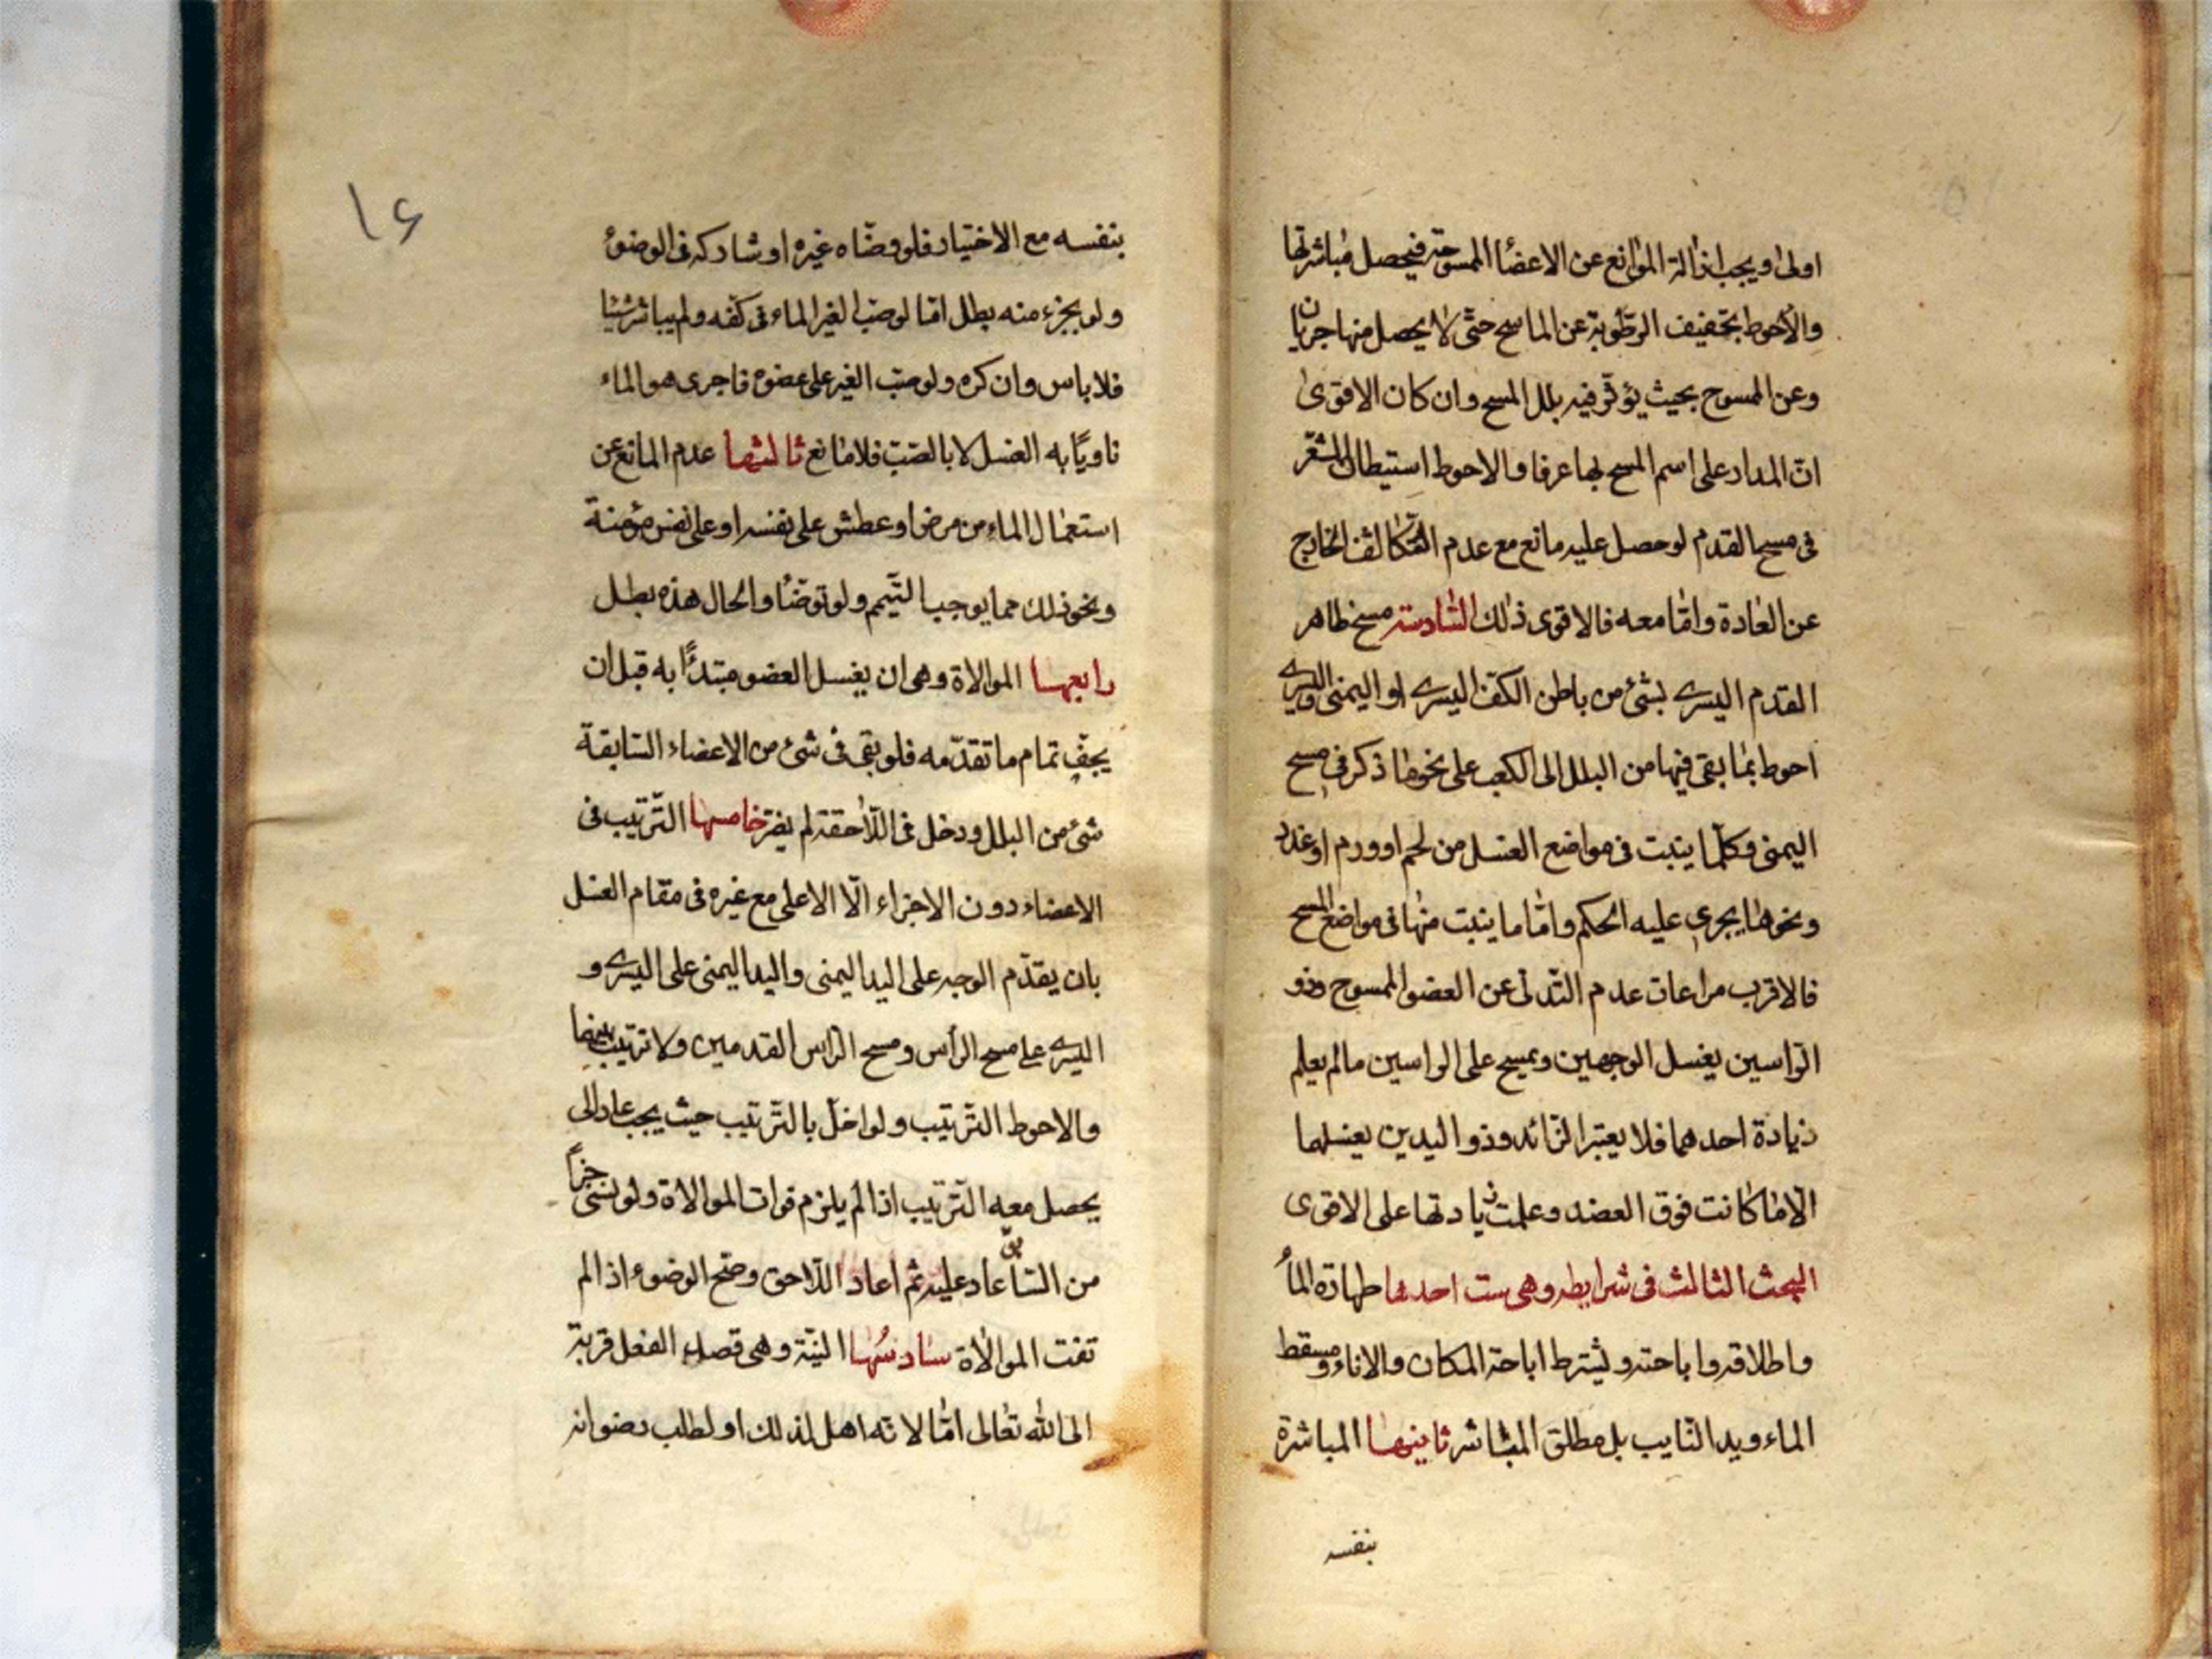 اولى ويجب ازالة الموانع عن الاعضا الممسوحة فيحصل مباشرتها
والاحوط تخفيف الرطوبة عن الماسح حتى لا يحصل منها جريان
وعن الممسوح بحيث يؤثر فيه بلل المسح وان كان الاقوى
ان المدار على اسم المسح بها عرفا والاحوط استبطان الشعر
فى مسح القدم لو حصل عليه مانع مع عدم التكاثف الخارج
عن العادة واما معه فالاقوى ذلك السادسة مسح ظاهر
القدم اليسرى بشئ من باطن الكف اليسرى او اليمنى واليسرى
احوط بما بقى فيها من البلل الى الكعب على نحو ما ذكر فى مسح
اليمنى وكلما ينبت فى مواضع الغسل من لحم او ورم او غدد
ونحوها يجرى عليه الحكم واما ما ينبت منها فى مواضع المسح
فالاقرب مراعات عدم التدلى عن العضو الممسوح وذو
الراسين يغسل الوجهين ويمسح على الراسين مالم يعلم
زيادة احدهما فلا يعتبر الزائد وذو اليدين يغسلهما
الا ما كانت فوق العضد وعلمت زيادتها على الاقوى
البحث الثالث فى شرايطه وهى ست احدها طهارة الماء
واطلاقه واباحته ويشترط اباحة المكان والاناء ومسقط
الماء ويد النايب بل مطلق المباشر ثانيها المباشرة
بنفسه
١٦
بنفسه مع الاختيار فلو وضاه غيره او شاركه فى الوضوء
ولو بجزء منه بطل اما لو صب الغير الماء فى كفه ولم يباشر شيئا
فلا باس وان كره ولو صب الغير على عضوه فاجرى هو الماء
ناويًا به الغسل لا بالصب فلا مانع ثالثها عدم المانع عن
استعمال الماء من مرض او عطش على نفسه او على نفس مؤمنة
ونحو ذلك مما يوجب التيمم ولو توضأ والحال هذه بطل
رابعها الموالاة وهى ان يغسل العضو مبتدئًا به قبل ان
يجف تمام ما تقدمه فلو بقى فى شئ من الاعضاء السابقة
شئ من البلل ودخل فى اللاحقة لم يضر خامسها الترتيب فى
الاعضاء دون الاجزاء الا الاعلى مع غيره فى مقام الغسل
بان يقدم الوجه على اليد اليمنى واليد اليمنى على اليسرى و
اليسرى على مسح الرأس ومسح الراس القدمين ولا ترتيب بينهما
والاحوط الترتيب ولو اخل بالترتيب حيث يجب عاد الى
يحصل معه الترتيب اذا لم يلزم فوات الموالاة ولو نسى جزأ
من السابق عاد عليه ثم اعاد اللاحق وصح الوضوء اذا لم
تفت الموالاة سادسها النية وهى قصد الفعل قربة
الى الله تعالى اما لانه اهل لذلك او لطلب رضوانه